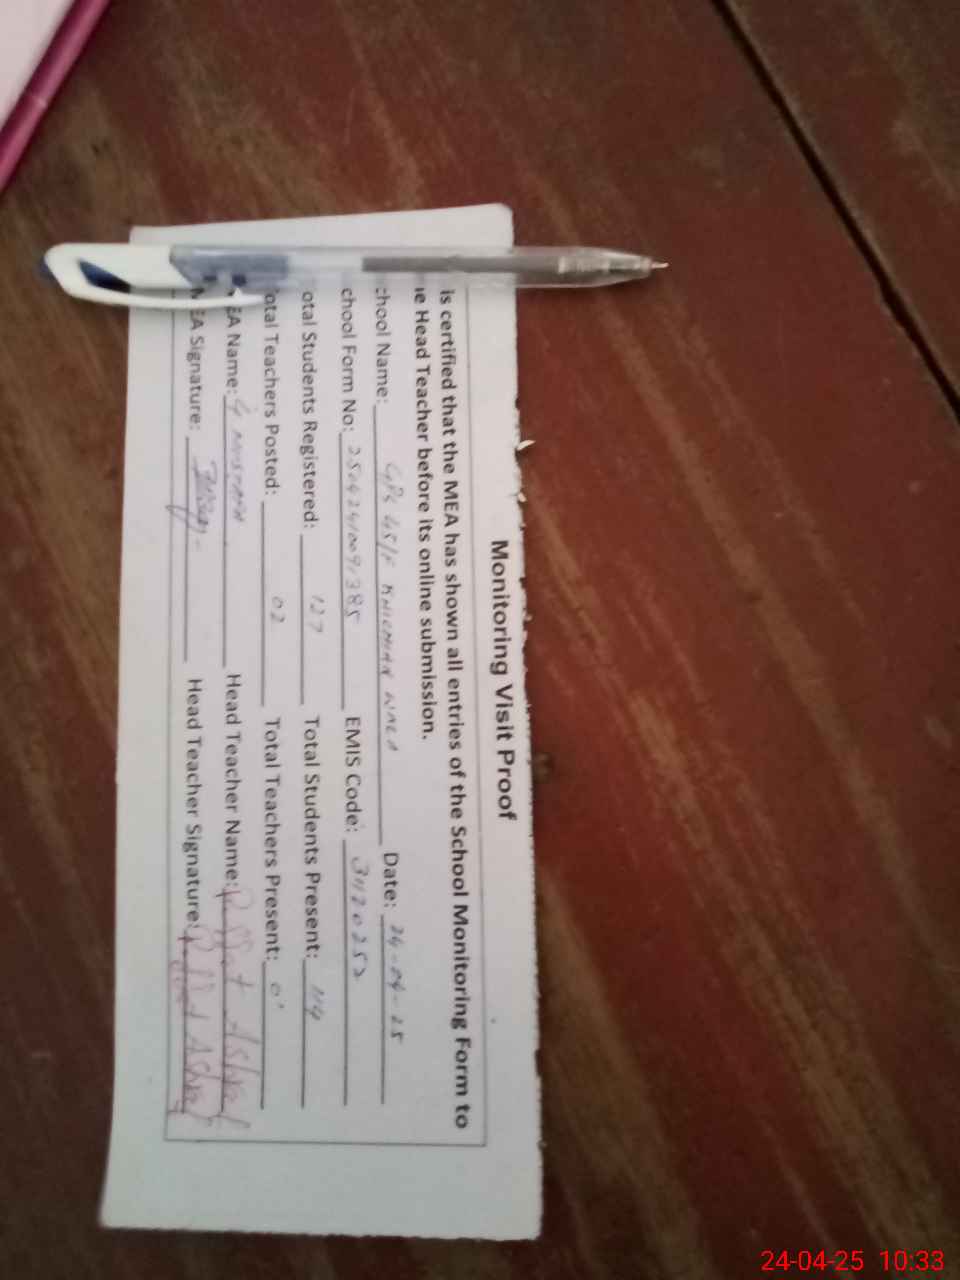 Monitoring Visit Proof
is certified that the MEA has shown all entries of the School Monitoring Form to
e Head Teacher before its online submission.
chool Name: Date: 24-04-25
chool Form No: 25042410091385 EMIS Code: 31120252
otal Students Registered: 127 Total Students Present: 114
otal Teachers Posted: 02 Total Teachers Present:
EA Name: Head Teacher Name: Riffat Ashraf
EA Signature: Head Teacher Signature: Riffat Ashraf
24-04-25 10:33